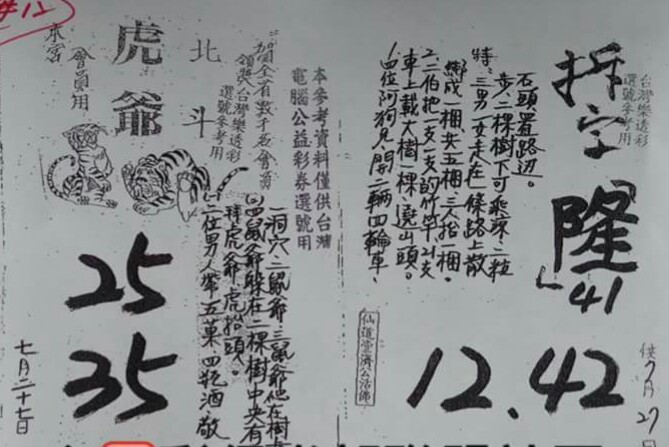 #12
拆字
台灣樂透彩
選號參考用
隆
41
12.42
供7月27日
特:三男一女走在一條路上散
步,二棵樹下可乘涼,二粒
石頭置路邊。
1.四位阿狗兄開二輛四輪車,
車上載大樹一棵,遶山頭。
2.二伯把一支一支的竹竿21支
綁成一梱,共五梱,三人抬一梱。
仙道堂濟公活佛
本參考資料僅供台灣
電腦公益彩券選號用
台灣樂透彩
選號參考用
北斗
虎爺
會員用
25
35
七月二十七日
(一)二位男人帶五菓四瓶酒,敬
拜虎爺虎抬頭。
(2)四鼠爺躲在二棵樹中央有
一洞穴,二鼠爺三鼠爺他在樹